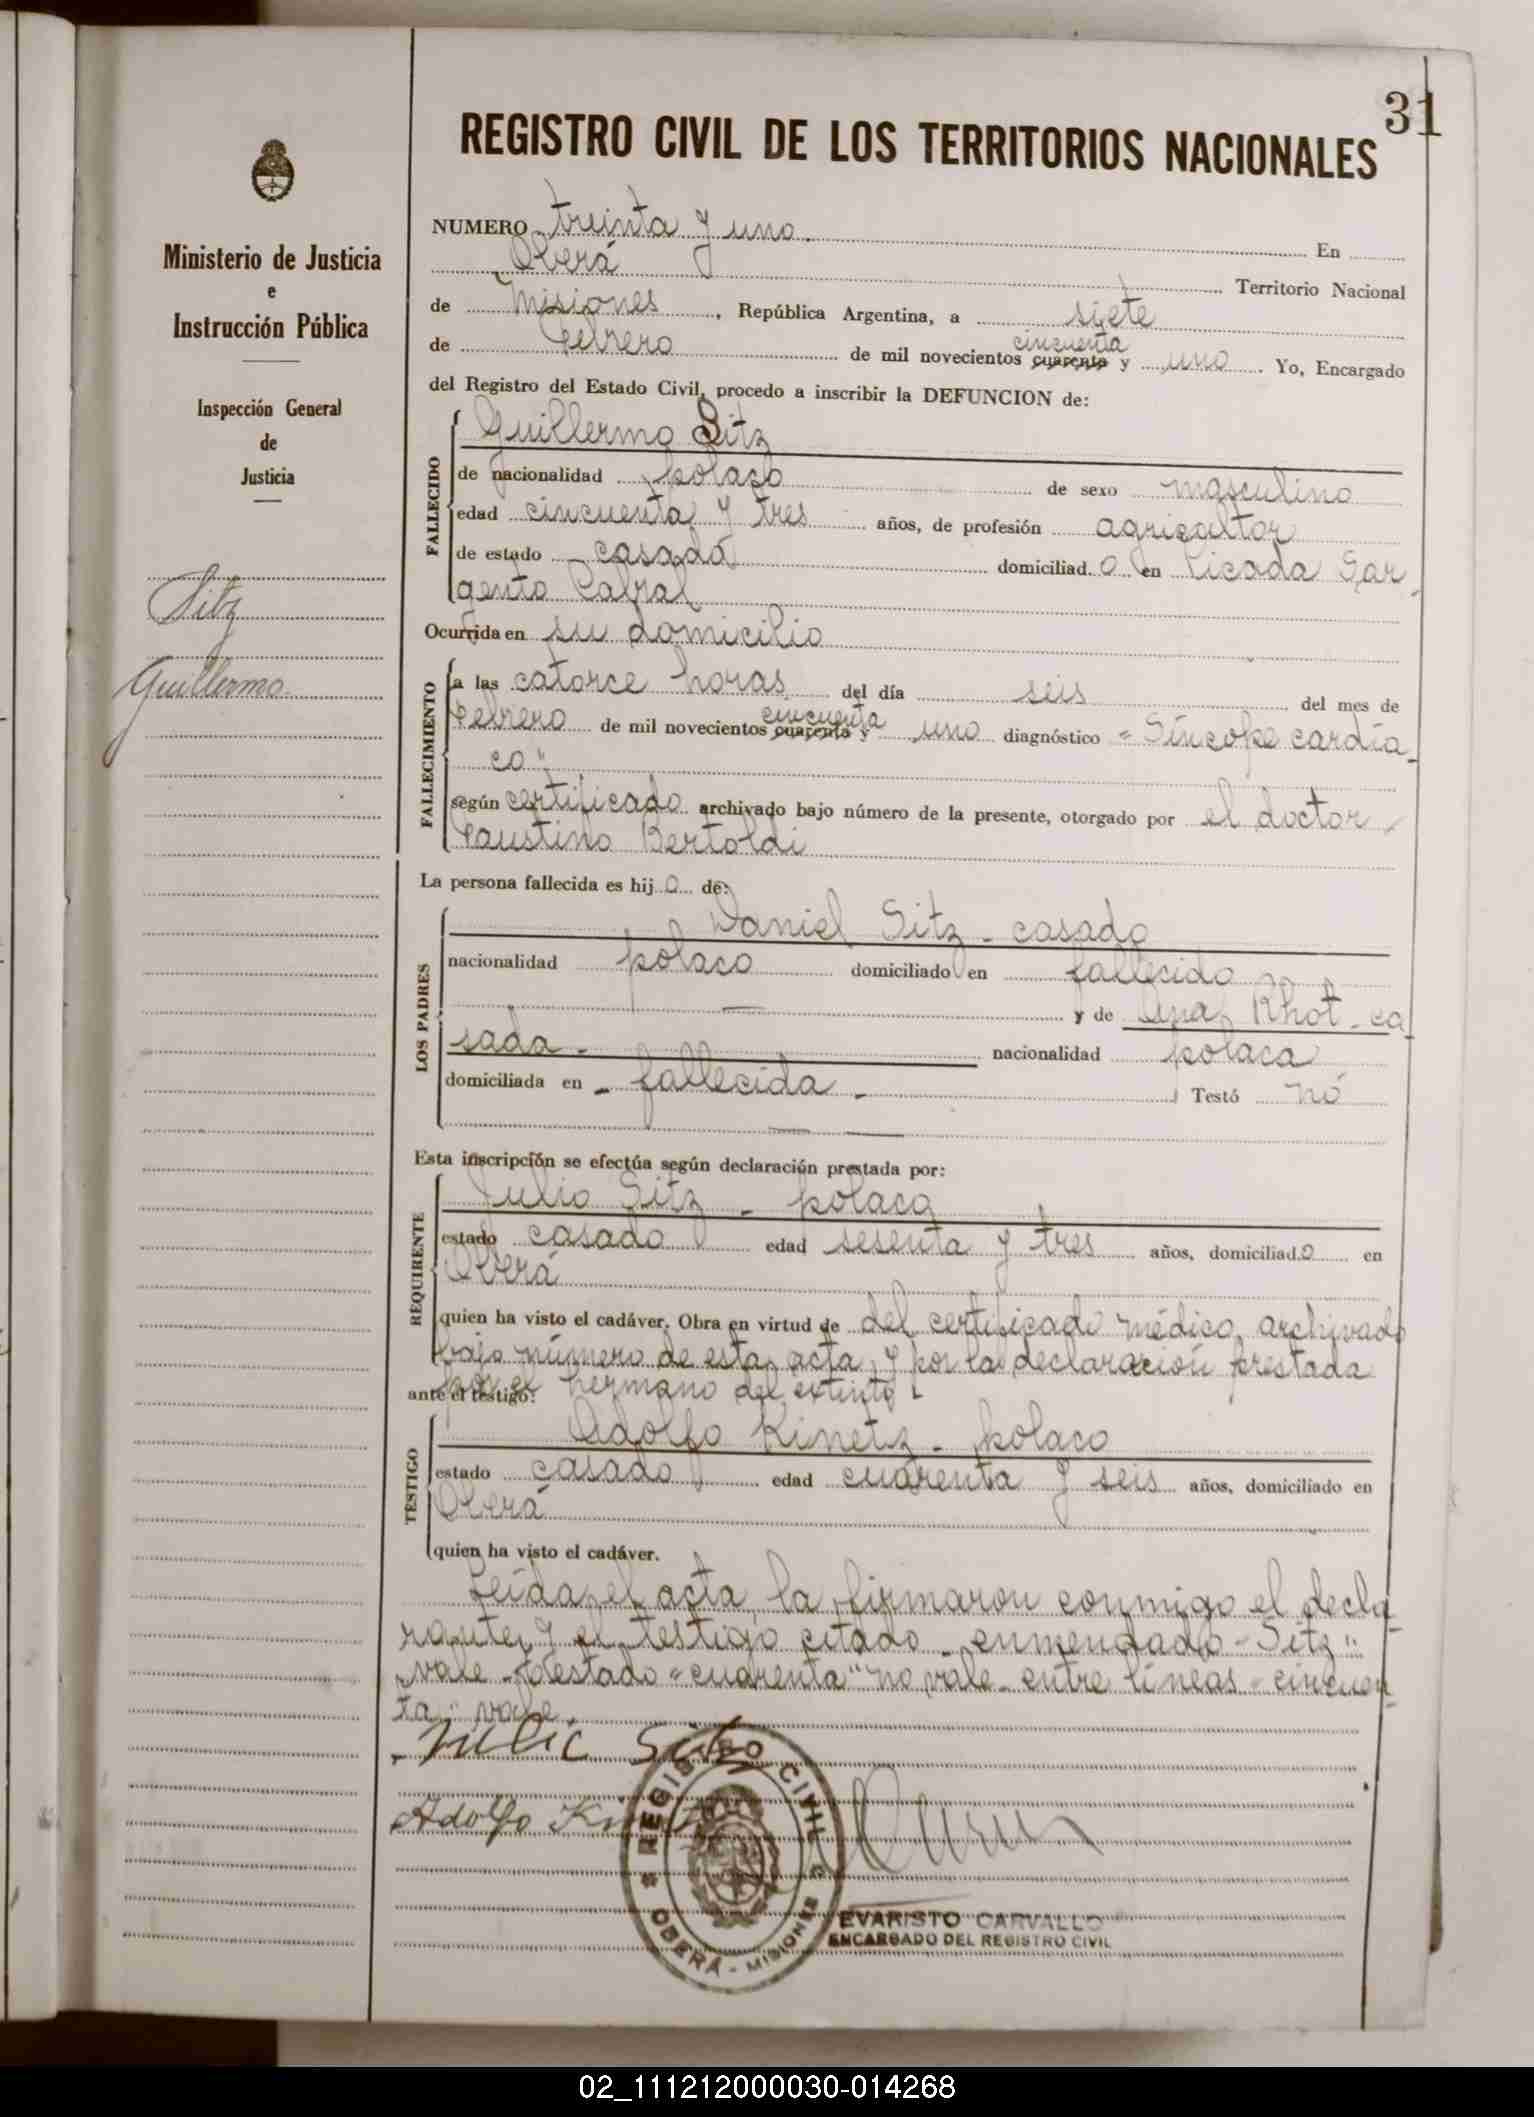 31
REGISTRO CIVIL DE LOS TERRITORIOS NACIONALES
Ministerio de Justicia
e
Instrucción Pública
Inspección General
de
Justicia
Sitz
Guillermo
NUMERO treinta y uno. En
Oberá Territorio Nacional
de Misiones, República Argentina, a siete
cincuenta
de febrero de mil novecientos cuarenta y uno. Yo, Encargado
del Registro del Estado Civil, procedo a inscribir la DEFUNCION de:
FALLECIDO
Guillermo Sitz
de nacionalidad polaco de sexo masculino
edad cincuenta y tres años, de profesión agricultor
de estado casado domiciliado en Picada Sar
gento Cabral
Ocurrida en su domicilio
FALLECIMIENTO
a las catorce horas del día seis del mes de
cincuenta
febrero de mil novecientos cuarenta y uno diagnóstico "Síncope cardía-
co"
según certificado archivado bajo número de la presente, otorgado por el doctor
Faustino Bertoldi
La persona fallecida es hijo de:
LOS PADRES
Daniel Sitz - casado
nacionalidad polaco domiciliado en fallecido
y de Ana Rhot - ca-
sada - nacionalidad polaca
domiciliada en - fallecida - Testó nó
Esta inscripción se efectúa según declaración prestada por:
REQUIRENTE
Julio Sitz - polaco
estado casado edad sesenta y tres años, domiciliado en
Oberá
quien ha visto el cadáver. Obra en virtud de del certificado médico archivado
bajo número de esta acta, y por la declaración prestada
por el hermano del extinto -
ante el testigo:
TESTIGO
Adolfo Kinetz - polaco
estado casado edad cuarenta y seis años, domiciliado en
Oberá
quien ha visto el cadáver.
Leída el acta, la firmaron conmigo el decla-
rante y el testigo citado - enmendado - Sitz"
vale - testado "cuarenta" no vale - entre líneas - cincuen-
ta" vale.
Julio Sitz
Adolfo
REGISTRO CIVIL
OBERÁ - MISIONES
EVARISTO CARVALLO
ENCARGADO DEL REGISTRO CIVIL
02_111212000030-014268